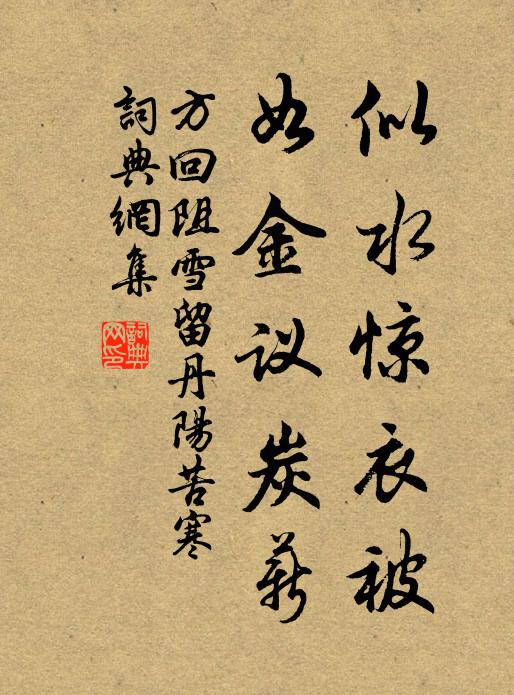 似水惊衣被
如金议炭薪
方回阻雪留丹陽苦寒
詞典網集
詞典网印